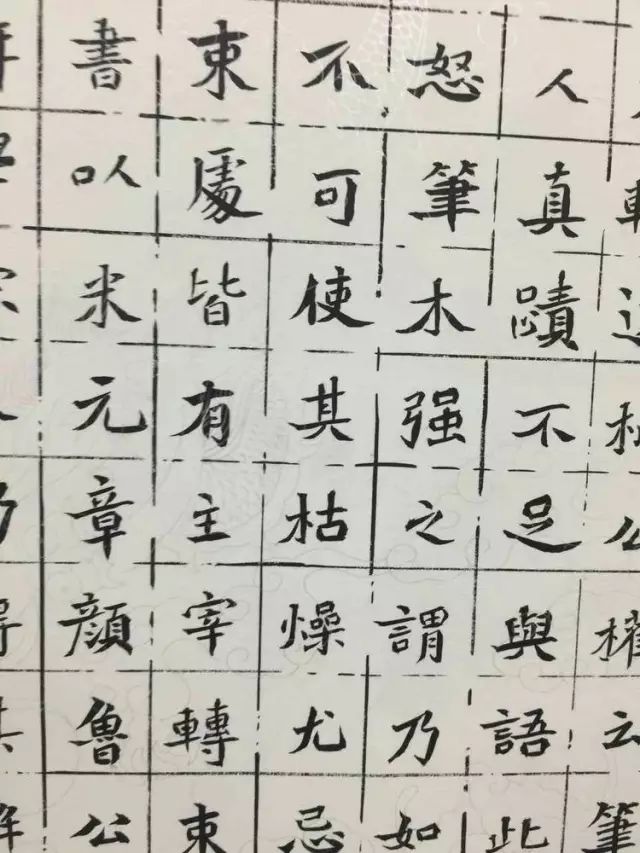 公權云筆
人真蹟不足與語此
怒筆木强之謂乃如
不可使其枯燥尤忌
束處皆有主宰轉束
書以米元章顏魯公